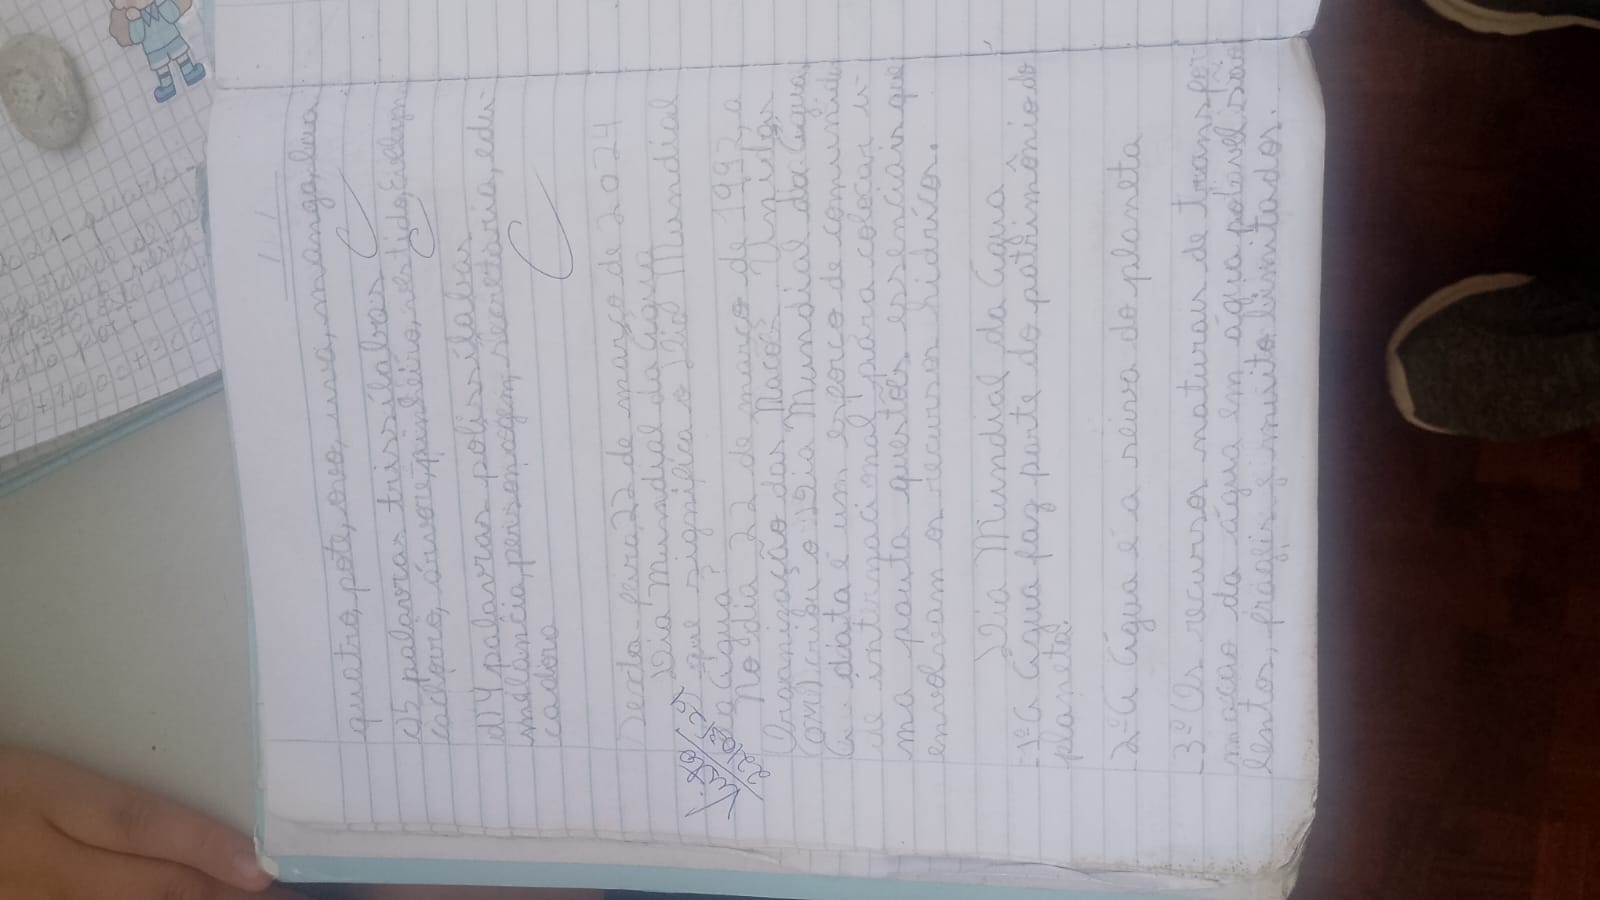 quatro, pote, ovo, uva, manga, lua
c) 5 palavras trissílabas
cachorro, árvore, primeiro, vestido,
d) 4 palavras polissílabas.
melancia, personagem, secretária, edu-
cadora
Sexta-feira 22 de março de 2024
Dia Mundial da Água
O que significa o Dia Mundial
da Água?
No dia 22 de março de 1992, a
Organização das Nações Unidas
(ONU) o Dia Mundial da Água,
A data é um esforço da comunida
de internacional para colocar
na pauta questões essenciais que
envolveam os recursos hídricos.
Visto
22/03/24
Dia Mundial da Água
-1º A Água faz parte do patrimônio do
planeta.
-2º A Água é a seiva do planeta
-3º Os recursos naturais de transfor-
mação da água em água potável são
lentos, frágeis e muito limitados.
2024 - quarta-